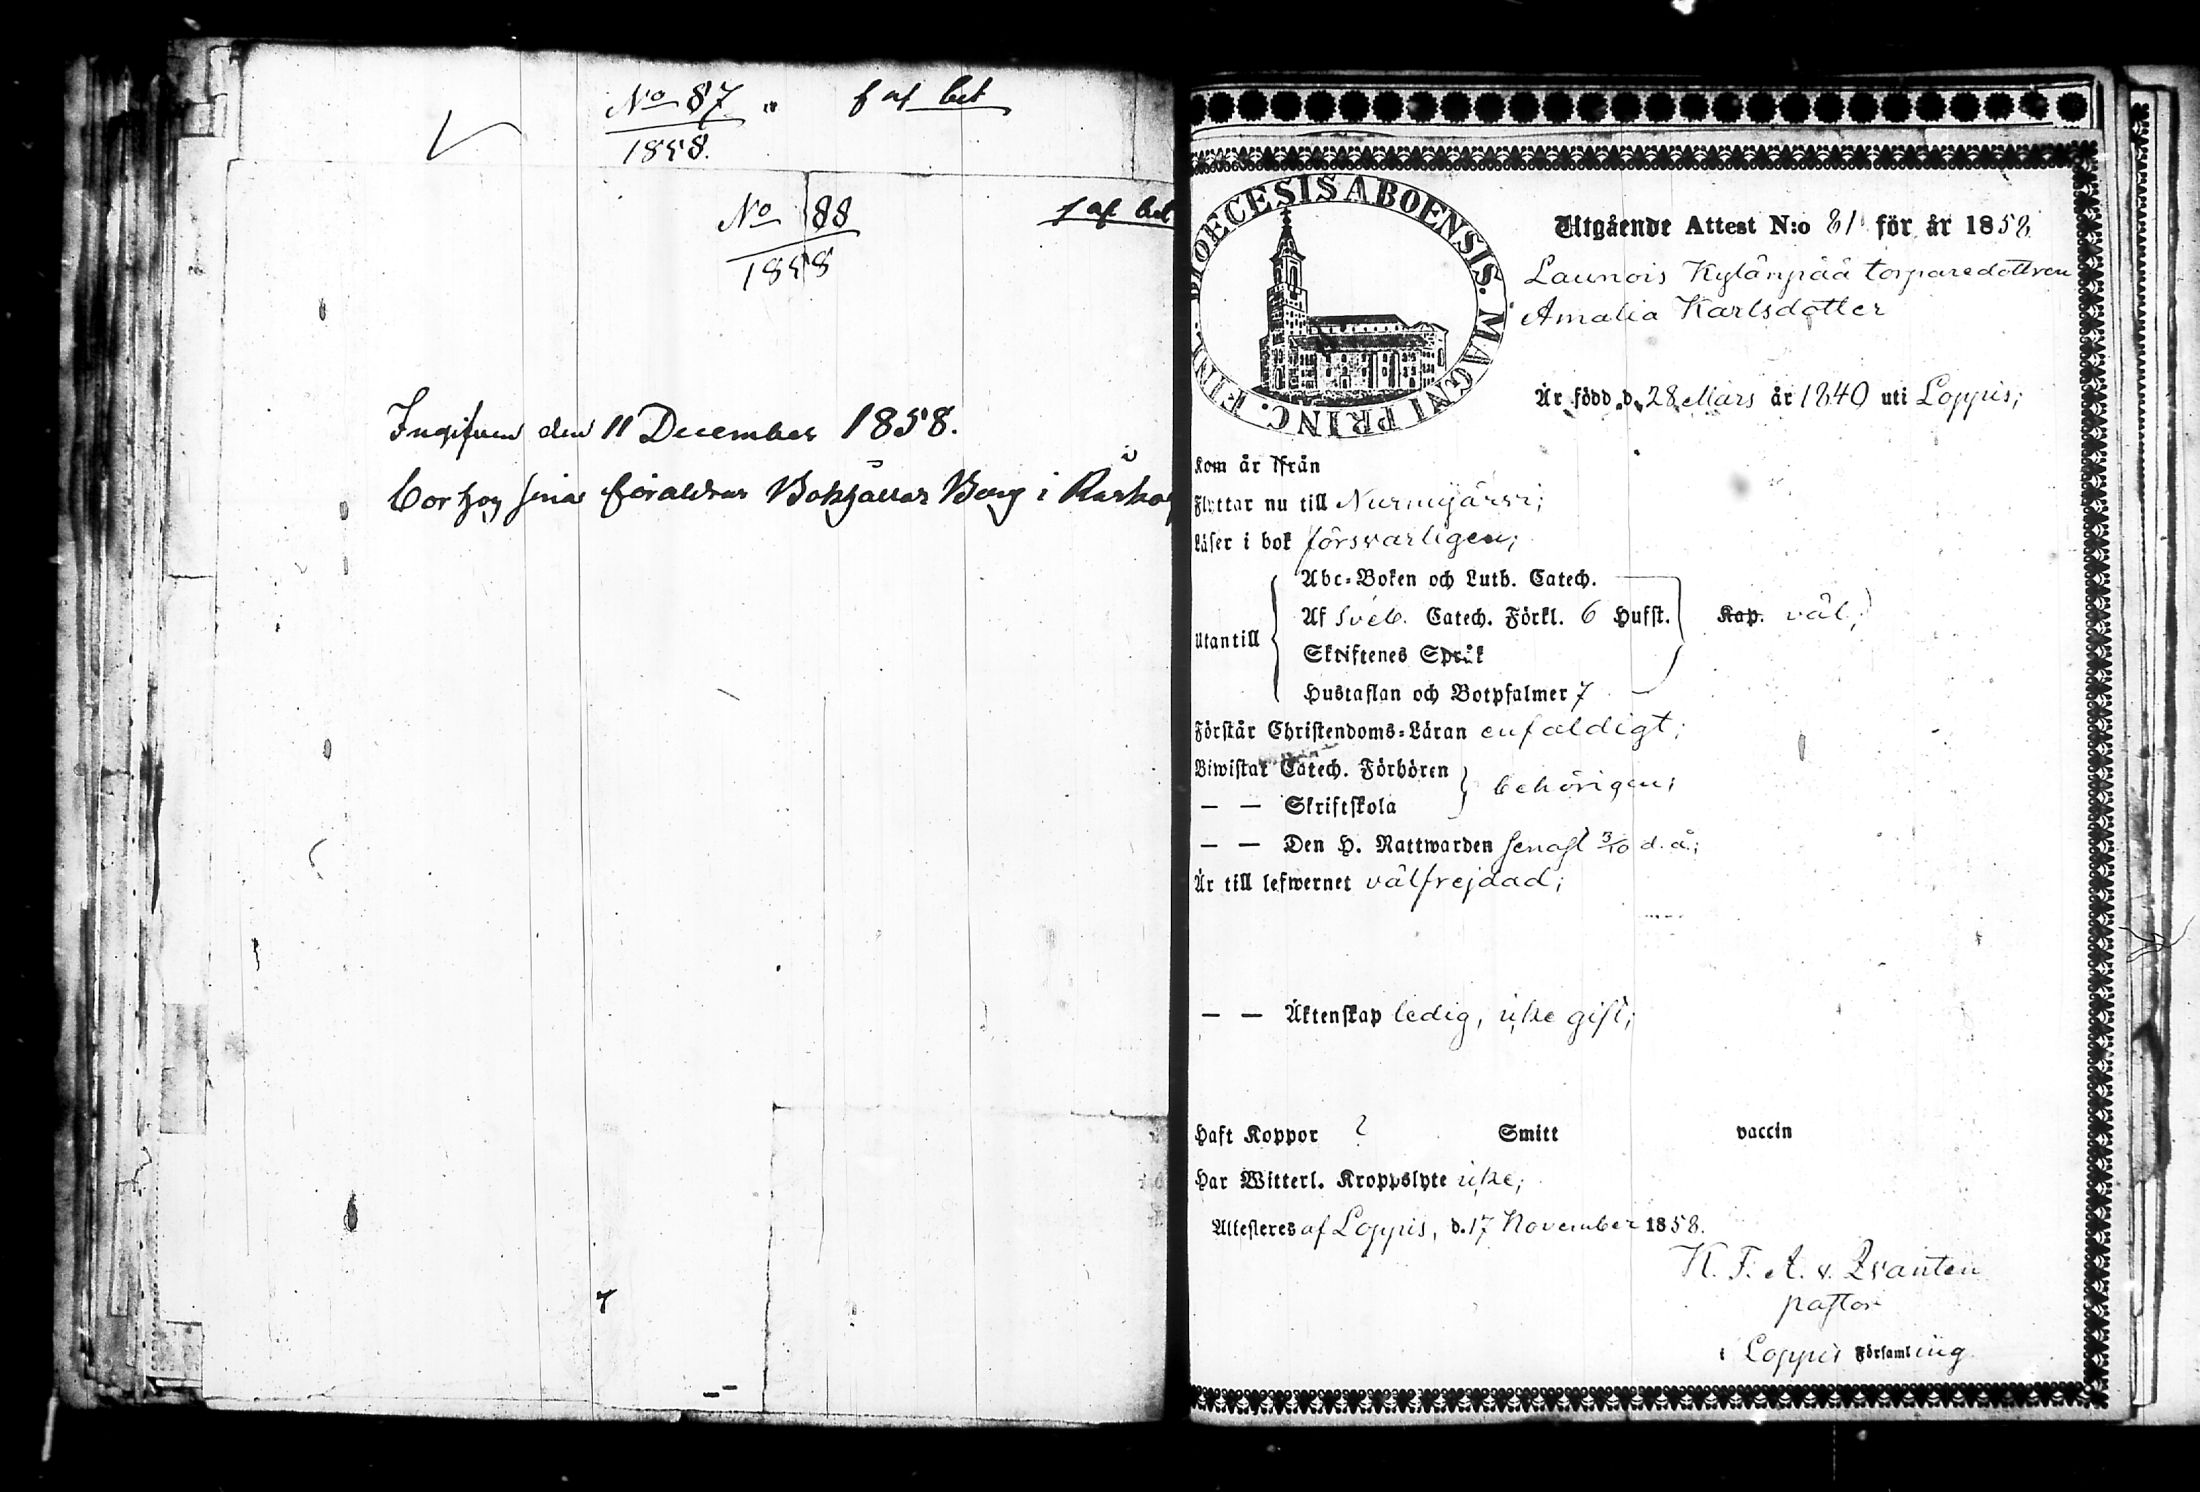 No 87 " f af bet
1858.
No 88 f af bet
1858
Ingifven den 11 December 1858.
bor hos sina föräldrar Bokhållar Berg i
DIOECESIS ABOENSIS. MAGNI PRINC. FINL.
Utgående Attest N:o 81 för år 1858
Launois Kylänpää torparedottren
Amalia Karlsdotter
Är född d. 28 Mars år 1840 uti Loppis;
Kom år ifrån
Flyttar nu till Nurmijärvi;
Läser i bok försvarligen;
Abc-Boken och Luth. Catech.
Af Sveb. Catech. Förkl. 6 Hufst. Kap. väl;
Utantill
Skriftenes Språk
Hustaflan och Botpsalmer 7
Förstår Christendoms-Läran enfaldigt;
Biwistat Catech. Förhören
behörigen;
— — Skriftskola
— — Den H. Nattwarden senast 3/10 d. å.;
Är till lefwernet välfrejdad;
— — Äktenskap ledig, icke gift;
Haft Koppor ? Smitt vaccin
Har Witterl. Kroppslyte icke;
Attesteras af Loppis, d. 17 November 1858.
K. F. A. v. Qvanten
pastor
i Loppis Församling